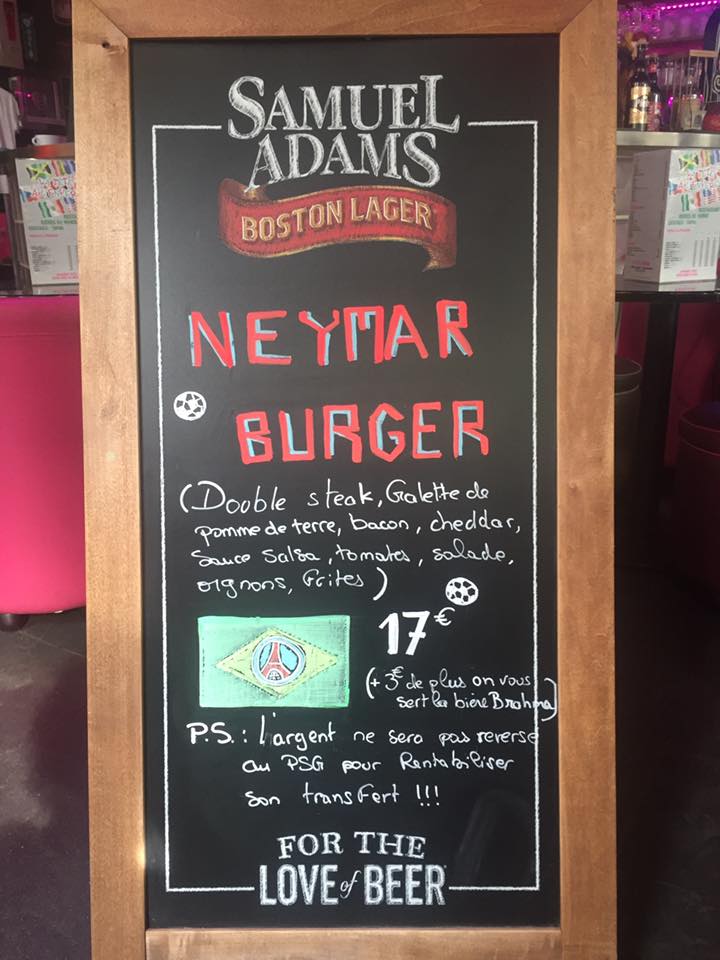 SAMUEL
ADAMS
BOSTON LAGER
NEYMAR
BURGER
(Double steak, Galette de
pomme de terre, bacon, cheddar,
Sauce Salsa, tomates, salade,
oignons, Frites)
17€
(+3€ de plus on vous
sert la bière Brahma)
P.S.: l'argent ne sera pas reverse
au PSG pour Rentabiliser
son transfert !!!
FOR THE
LOVE of BEER